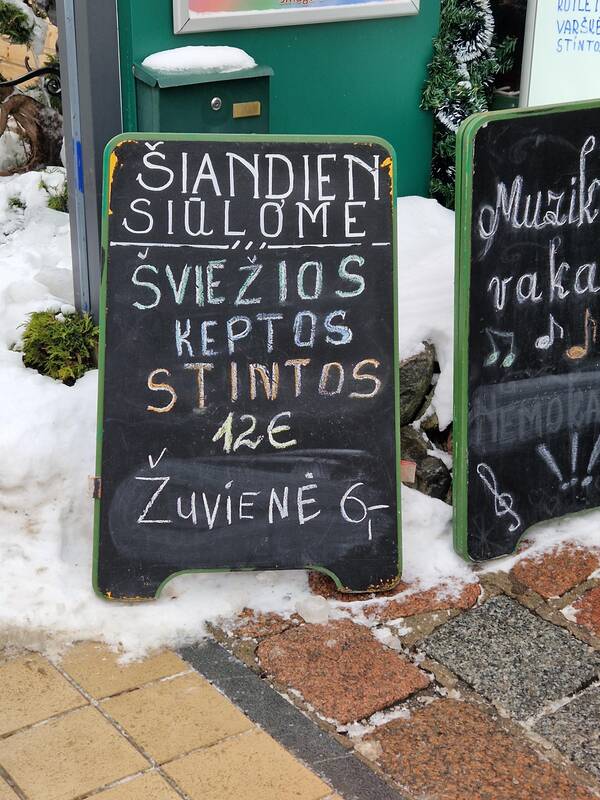 ŠIANDIEN
SIŪLOME
ŠVIEŽIOS
KEPTOS
STINTOS
12€
ŽUVIENĖ 6,-
Muzik
vaka
NEMOKA
!!!
VARŠKĖ
STINTO